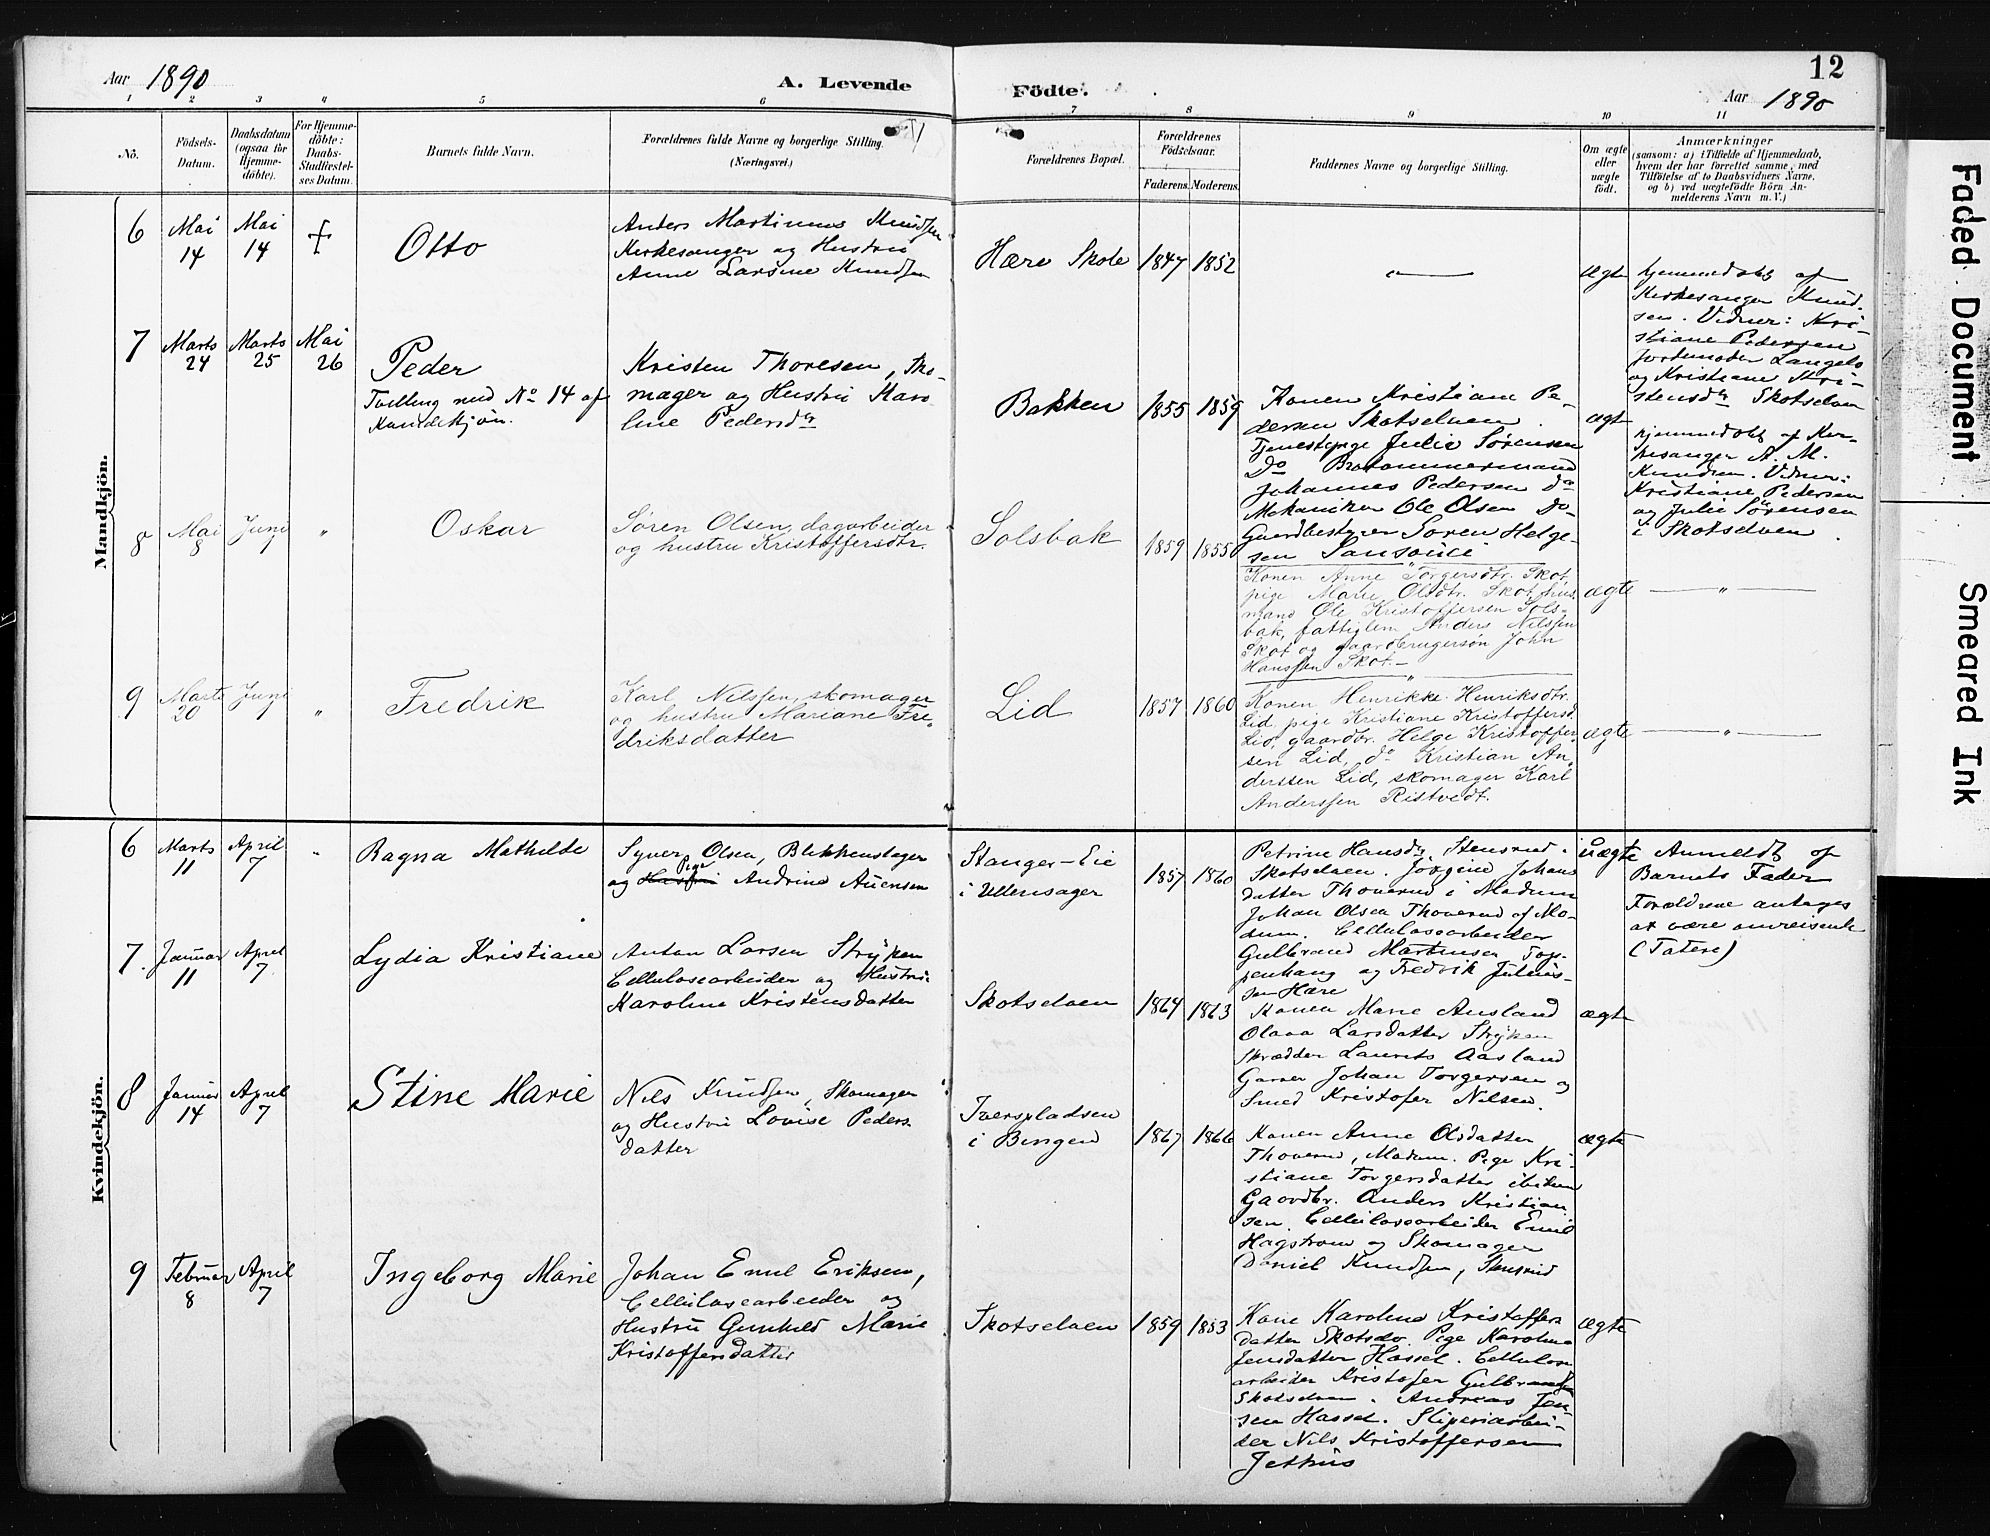 Aar 1890
A. Levende
Födte.
12
Aar 1890
1 2 3 4 5 6 7 8 9 10 11
No.
Födsels-
Datum.
Daabsdatum
(ogsaa for
Hjemme-
döbte).
For Hjemme-
döbte:
Daabs-
Stadfæstel-
ses Datum.
Barnets fulde Navn.
Forældrenes fulde Navne og borgerlige Stilling.
(Næringsvei.)
Forældrenes Bopæl.
Forældrenes
Födselsaar.
Faderens. Moderens.
Faddernes Navne og borgerlige Stilling.
Om ægte
eller
uægte
födt.
Anmærkninger
(saasom: a) i Tilfælde af Hjemmedaab,
hvem der har forrettet samme, med
Tilföielse af to Daabsvidners Navne,
og b) ved uægtefödte Börn An-
melderens Navn m. V.)
Mandkjön.
6
Mai
14
Mai
14
Otto
Anders Martinus Knudsen
Kirkesanger og Hustru
Anne Larsine Knudsen
Hære Skole
1847 1852
ægte
hjemmedøbt af
Kirkesanger Knud-
sen. Vidner: Kri-
stiane Pedersen
Jordemoder
og Kristiane Kri-
stensdr Skotselven
7
Marts
24
Marts
25
Mai
26
Peder
Tvilling med No 14 af
Kvindekjøn.
Kristen Thoresen, Sko-
mager og Hustru Karo-
line Pedersdr
Bakken
1855 1859
Konen Kristiane Pe-
dersen Skotselven.
Tjenestepige Julie Sørensen
Do
Johannes Pedersen do
Mekaniker Ole Olsen do
Gaardbestyrer Soren Helge-
sen Sansouci
ægte
hjemmedøbt af Kir-
kesanger A. M.
Knudsen. Vidner:
Kristiane Pedersen
og Julie Sørensen
i Skotselven.
8
Mai
8
Juni
1
"
Oskar
Søren Olsen, dagarbeider
og hustru Kristoffersdtr.
Solsbak
1859 1855
Konen Anne Torgersdtr. Skot,
pige Marie Olsdtr. Skot, hus-
mand Ole Kristoffersen Sols-
bak, fattiglem Anders Nilssen
Skot og gaardbrugersøn John
Hanssen Skot.—
ægte
"
9
Marts
20
Juni
1
"
Fredrik
Karl Nilssen, skomager
og hustru Mariane Fre-
driksdatter
Lid
1857 1860
Konen Henrikke Henriksdtr.
Lid, pige Kristiane Kristoffersd.
Lid, gaardbr. Helge Kristoffer-
sen Lid, do Kristian An-
derssen Lid, skomager Karl
Anderssen Ristvedt.
ægte
"
Kvindekjön.
6
Marts
11
April
7
"
Ragna Mathilde
Syver Olsen, Blikkenslager
Pige
og Hustru Andrine Auensen
Stanger-Eie
i Ullensager
1857 1860
Petrine Hansdr. Stensrud i
Skotselven. Jørgine Johans
datter Thoverud i Modum
Johan Olsen Thoverud af Mo-
dum. Cellulosearbeider
Gulbrand Martinsen
og Fredrik Julius-
sen Hære
Uægte
Anmeldt af
Barnets Fader
Forældrene antages
at være omreisende
(Tatere)
7.
Januar
11
April
7
Lydia Kristiane
Anton Larsen Stryken
Cellulosearbeider og Hustru
Karoline Kristensdatter
Skotselven
1864 1863
Konen Marie Aasland
Olava Larsdatter Stryken
Skrædder Laurits Aasland
Garver Johan Torgersen og
Smed Kristofer Nilsen.
ægte
8
Januar
14
April
7
Stine Marie
Nils Knudsen, Skomager
og Hustru Lovise Peders
datter
Iverspladsen
i Bingen
1867 1866
Konen Anne Olsdatter
Thoverud, Modum. Pige Kri-
stiane Torgersdatter ibidem
Gaardbr. Anders Kristian
sen. Cellulosearbeider Emil
Hagstrom og Skomager
Daniel Knudsen, Stensrud
ægte
9
Februar
8
April
7
Ingeborg Marie
Johan Emil Eriksen,
Cellulosearbeider og
Hustru Gunhild Marie
Kristoffersdatter
Skotselven
1859 1853
Kone Karoline Kristoffers
datter Skotselv. Pige Karoline
Jensdatter Hassel. Cellulose
arbeider Kristofer Gulbrandsen
Skotselven. Andreas Jen-
sen Hassel. Sliperiarbei-
der Nils Kristoffersen
Jethus
ægte
Faded Document
Smeared Ink